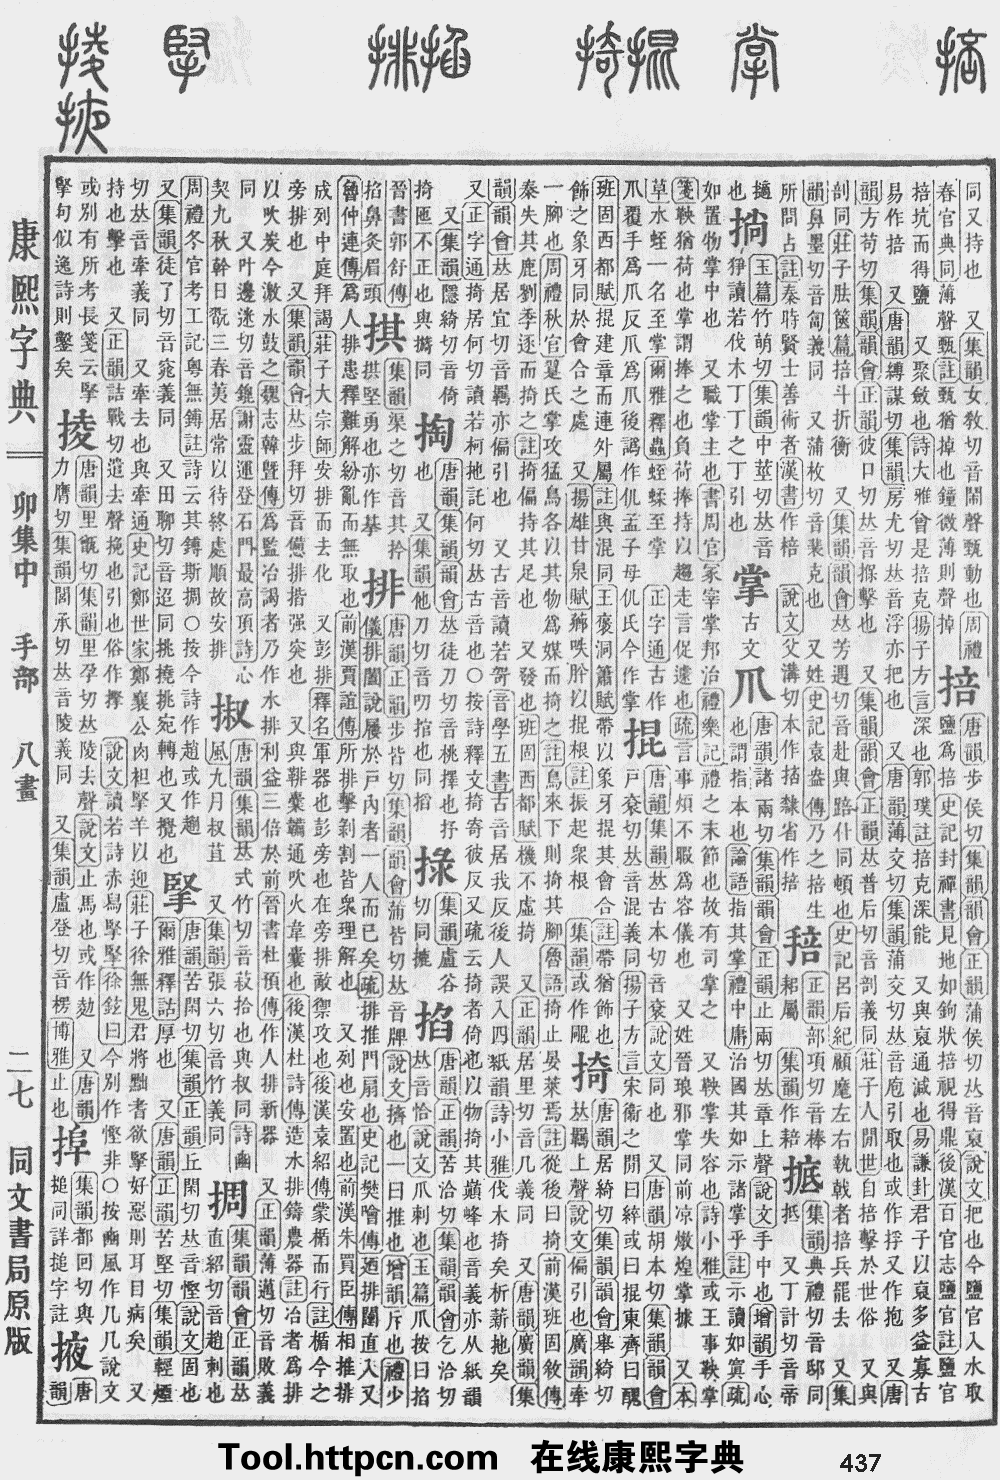 康熙字典
卯集中　手部　八畫
二七　同文書局原版
同又持也　又集韻女敎切音鬧聲甄動也周禮
春官典同薄聲甄註甄猶掉也鐘微薄則聲掉
掊
唐韻步侯切集韻韻會正韻蒲侯切𠀤音裒說文把也今鹽官入水取
鹽爲掊史記封禪書見地如鉤狀掊視得鼎後漢百官志鹽官註鹽官
掊坑而得鹽　又聚斂也詩大雅曾是掊克揚子方言深也郭璞註掊克深能　又與裒通減也易謙卦君子以裒多益寡古
易作掊　又唐韻縛謀切集韻房尤切𠀤音浮亦把也　又唐韻薄交切集韻蒲交切𠀤音庖引取也或作捊又作抱　又唐
韻方苟切集韻韻會正韻彼口切𠀤音掊擊也　又集韻韻會正韻𠀤普后切音剖義同莊子人閒世自掊擊於世俗　又與
剖同莊子胠篋篇掊斗折衡　又集韻韻會𠀤芳遇切音赴與踣仆同頓也史記呂后紀顧麾左右執戟者掊兵罷去　又集
韻鼻墨切音匐義同　又蒲枚切音裴克也　又姓史記袁盎傳乃之掊生
所問占註秦時賢士善術者漢書作棓　說文父溝切本作掊隸省作掊
正韻部項切音棒
耞屬集韻作耪
掋
集韻典禮切音邸同
抵　又丁計切音帝
掚
玉篇竹萌切集韻中莖切𠀤音
猙讀若伐木丁丁之丁引也
掌
古文
爪
唐韻諸兩切集韻韻會正韻止兩切𠀤章上聲說文手中也增韻手心
也謂指本也論語指其掌禮中庸治國其如示諸掌乎註示讀如寘
如置物掌中也　又職掌主也書周官冢宰掌邦治禮樂記禮之末節也故有司掌之　又鞅掌失容也詩小雅或王事鞅掌
箋鞅猶荷也掌謂捧之也負荷捧持以趨走言促遽也疏言事煩不暇爲容儀也　又姓晉琅邪掌同前凉燉煌掌據　又本
草水蛭一名至掌爾雅釋蟲蛭蝚至掌　正字通古作
爪覆手爲爪反爪爲爪後譌作仉孟子母仉氏今作掌
掍
唐韻集韻𠀤古本切音袞說文同也　又唐韻胡本切集韻韻會
戸袞切𠀤音混義同揚子方言宋衞之閒曰綷或曰掍東齊曰醜
班固西都賦掍建章而連外屬註與混同王褒洞簫賦帶以象牙掍其會合註帶猶飾也
飾之象牙同於會合之處　又揚雄甘泉賦
掎
唐韻居綺切集韻韻會舉綺切
𠀤羈上聲說文偏引也廣韻牽
一脚也周禮秋官翨氏掌攻猛鳥各以其物爲媒而掎之註鳥來下則掎其脚魯語掎止晏萊焉註從後曰掎前漢班固敘傳
秦失其鹿劉季逐而掎之註掎偏持其足也　又發也班固西都賦機不虛掎　又正韻居里切音几義同　又唐韻廣韻集
韻韻會𠀤居宜切音羈亦偏引也　又古音讀若哿音學五書古音居我反後人誤入四紙韻詩小雅伐木掎矣析薪杝矣
又正字通掎居何切讀若柯杝託何切𠀤古音也○按詩釋文掎寄彼反又疏云掎者倚也以物掎其巓峰也音義亦从紙韻
又集韻隱綺切音倚
掎匜不正也與攲同
掏
唐韻集韻韻會𠀤徒刀切音桃擇也抒
也　又集韻他刀切音叨掐也同搯
掾
掐
唐韻正韻苦洽切集韻韻會乞洽切
𠀤音恰說文爪刺也玉篇爪按曰掐
晉書郭舒傳
掐鼻灸眉頭
掑
集韻渠之切音其拎
掑堅勇也亦作綦
排
唐韻正韻步皆切集韻韻會蒲皆切𠀤音牌說文擠也一曰推也增韻斥也禮少
儀排闔說屨於戸內者一人而已矣疏排推門扇也史記樊噲傳廼排闥直入又
魯仲連傳爲人排患釋難解紛亂而無取也前漢賈誼傳所排擊剝割皆衆理解也　又列也安置也前漢朱買臣傳相推排
成列中庭拜謁莊子大宗師安排而去化　又彭排釋名軍器也彭旁也在旁排敵禦攻也後漢袁紹傳蒙楯而行註楯今之
旁排也　又集韻韻會𠀤步拜切音憊排揩强突也　又與鞴橐韛通吹火韋囊也後漢杜詩傳造水排鑄農器註冶者爲排
以吹炭今激水鼓之魏志韓曁傳爲監冶謁者乃作水排利益三倍於前晉書杜預傳作人排新器　又正韻薄邁切音敗義
同　又叶邊迷切音鎞謝靈運登石門最高頂詩心
契九秋榦日翫三春荑居常以待終處順故安排
掓
唐韻集韻𠀤式竹切音菽拾也與叔同詩豳
風九月叔苴　又集韻張六切音竹義同
掆
周禮冬官考工記粵無鎛註詩云其鎛斯掆○按今詩作趙或作趟
又集韻徒了切音窕義同　又田聊切音迢同挑撓挑宛轉也又攪也
掔
唐韻苦閑切集韻正韻丘閑切𠀤音慳說文固也
爾雅釋詁厚也　又唐韻正韻苦堅切集韻輕煙
切𠀤音牽義同　又牽去也與牽通史記鄭世家鄭襄公肉袒掔羊以迎莊子徐無鬼君將黜耆欲掔好惡則耳目病矣　又
持也擊也　又正韻詰戰切遣去聲挽也引也俗作㩃　說文讀若詩赤舄掔掔徐鉉曰今別作慳非○按豳風作几几說文
或別有所考長箋云掔
掔句似逸詩則鑿矣
掕
唐韻里甑切集韻里孕切𠀤陵去聲說文止馬也或作勊　又唐韻
力膺切集韻閭承切𠀤音陵義同　又集韻盧登切音楞博雅止也
㨃
集韻都回切與
搥同詳搥字註
掖
唐
韻
Tool.httpcn.com　在线康熙字典
437